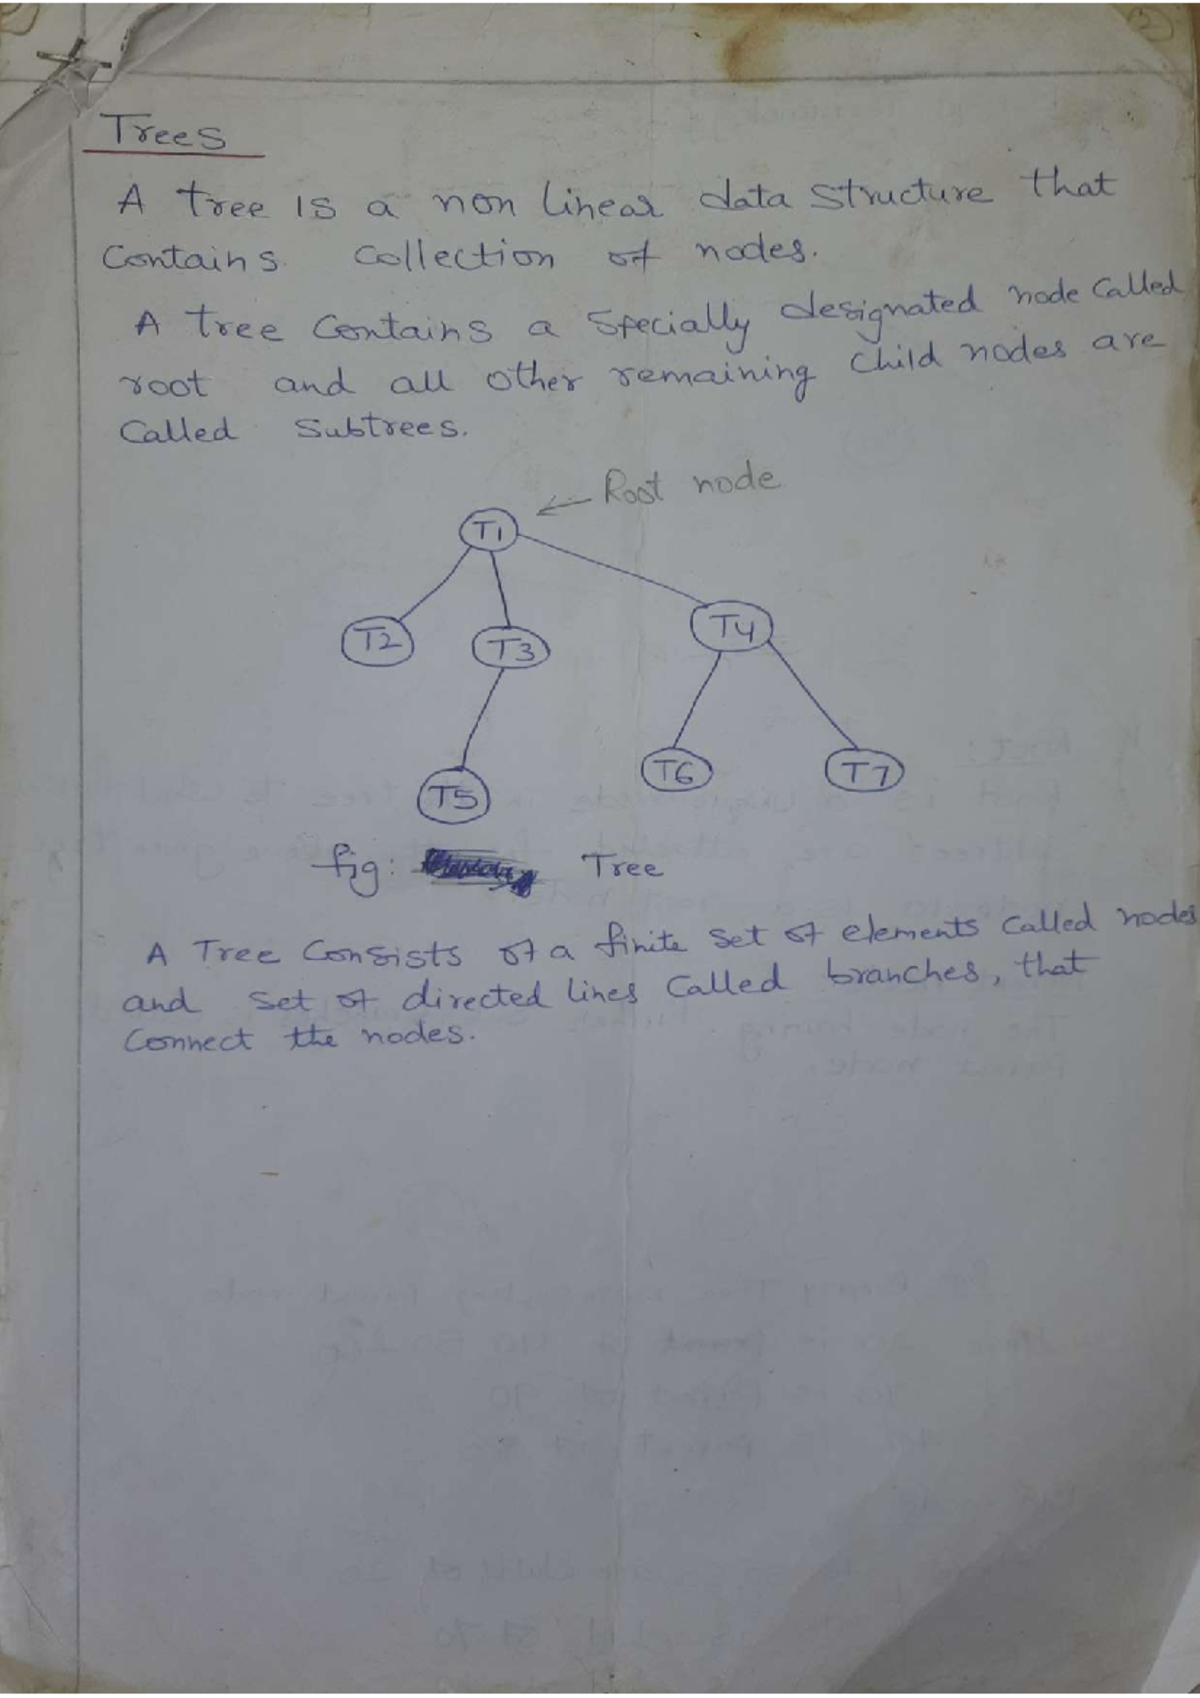 Trees
A tree is a non linear data structure that
contains collection of nodes.
A tree contains a specially designated node called
root and all other remaining child nodes are
called subtrees.
Root node
T1
T2 T3 T4
T5 T6 T7
fig: Tree
A Tree consists of a finite set of elements called nodes
and set of directed lines called branches, that
connect the nodes.